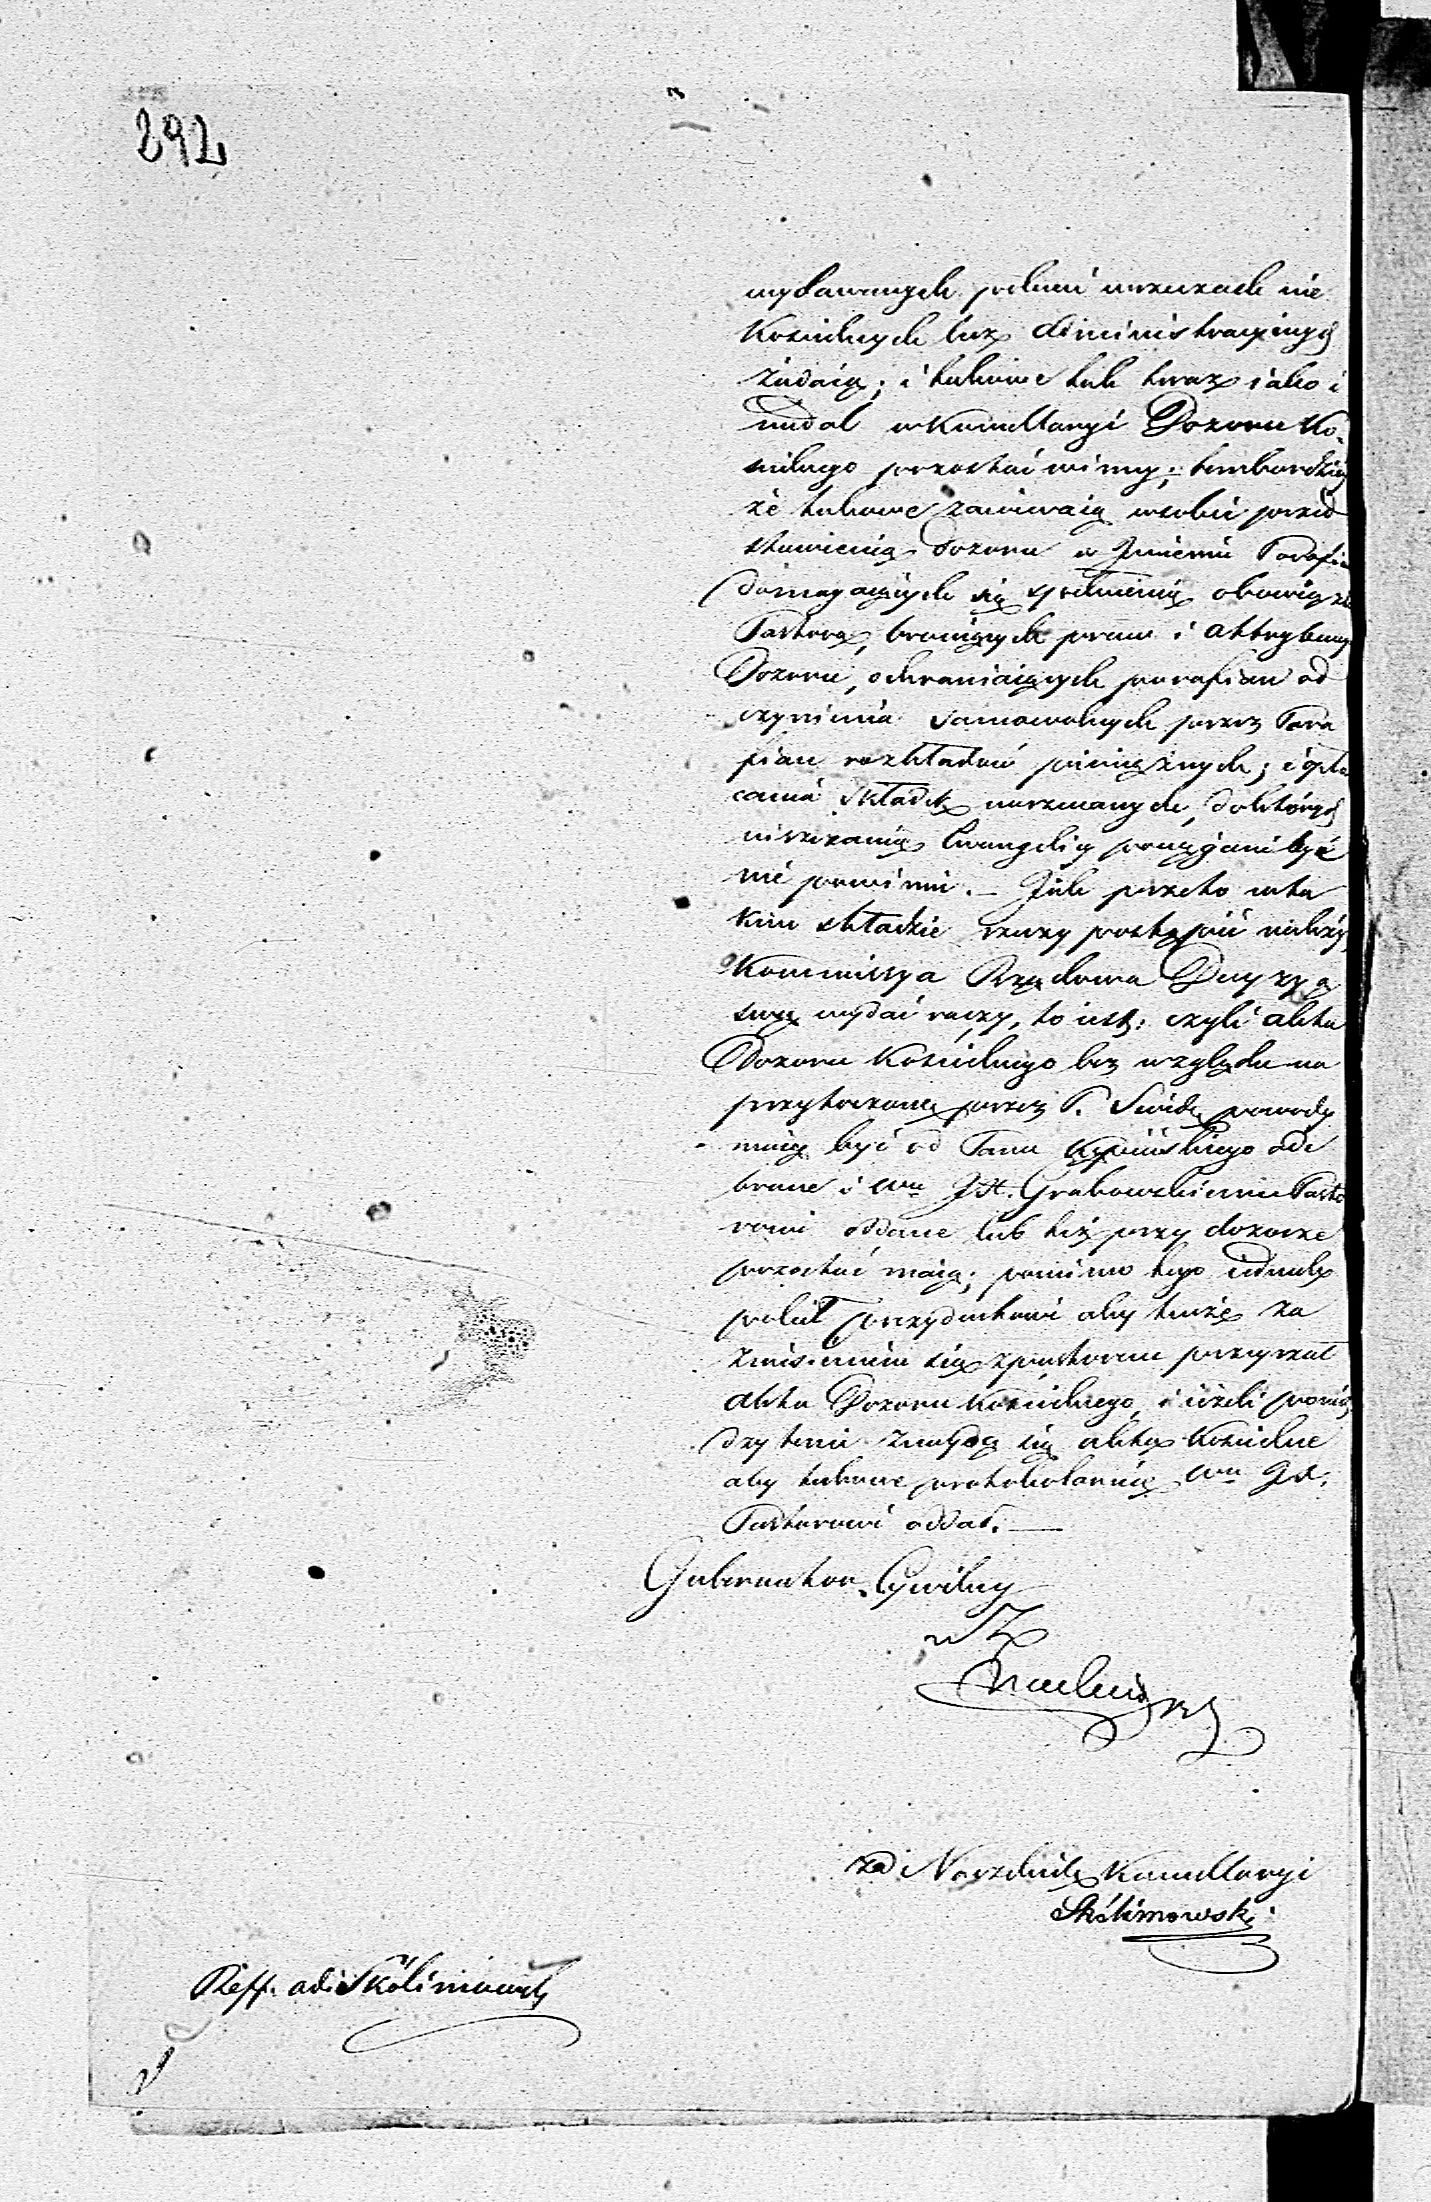 292
wydawanych w rzeczach nie
Kościelnych lecz administracyinych
żądaią; i takowe tak teraz iako i
nadal w Kancellaryi Dozoru Ko-
scielnego pozostać winny; tembardziey
że takowe zawieraią w sobie przed
stawienia Dozoru w Jmieniu Parafian
domagaiących się spełnienia obowiązków
Pastora, broniących praw i attrybucyi
Dozoru, ochraniaiących parafian od
czynienia samowolnych przez Para
fian rozkładów pieniężnych; i opła
cania składek, do których
Ewangelicy pociągani być
nie powinni. – Jak przeto w ta
kim składzie rzeczy postąpić należy,
Kommissya Rządowa Decyzyą
swą wydać raczy, to iest: czyli akta
Dozoru Kościelnego bez względu na
przytoczone przez P. powody
maią być od Pana odе
brane i Wu JX. Grabowskiemu Pasto
rowi oddane lub też przy dozorze
pozostać maią; pomimo tego iednak
polecił aby tenże za
zniesieniem się z pastorem przeyrzał
akta Dozoru Kościelnego, i ieżeli pomię
dzy temi znaydą się akta Kościelne
aby takowe protokolarnie Wu JX.
Pastorowi oddał. —
Gubernator Cywilny
w Z
za Naczelnika Kancellaryi
Skolimowski
Reff. adi Skolimowski